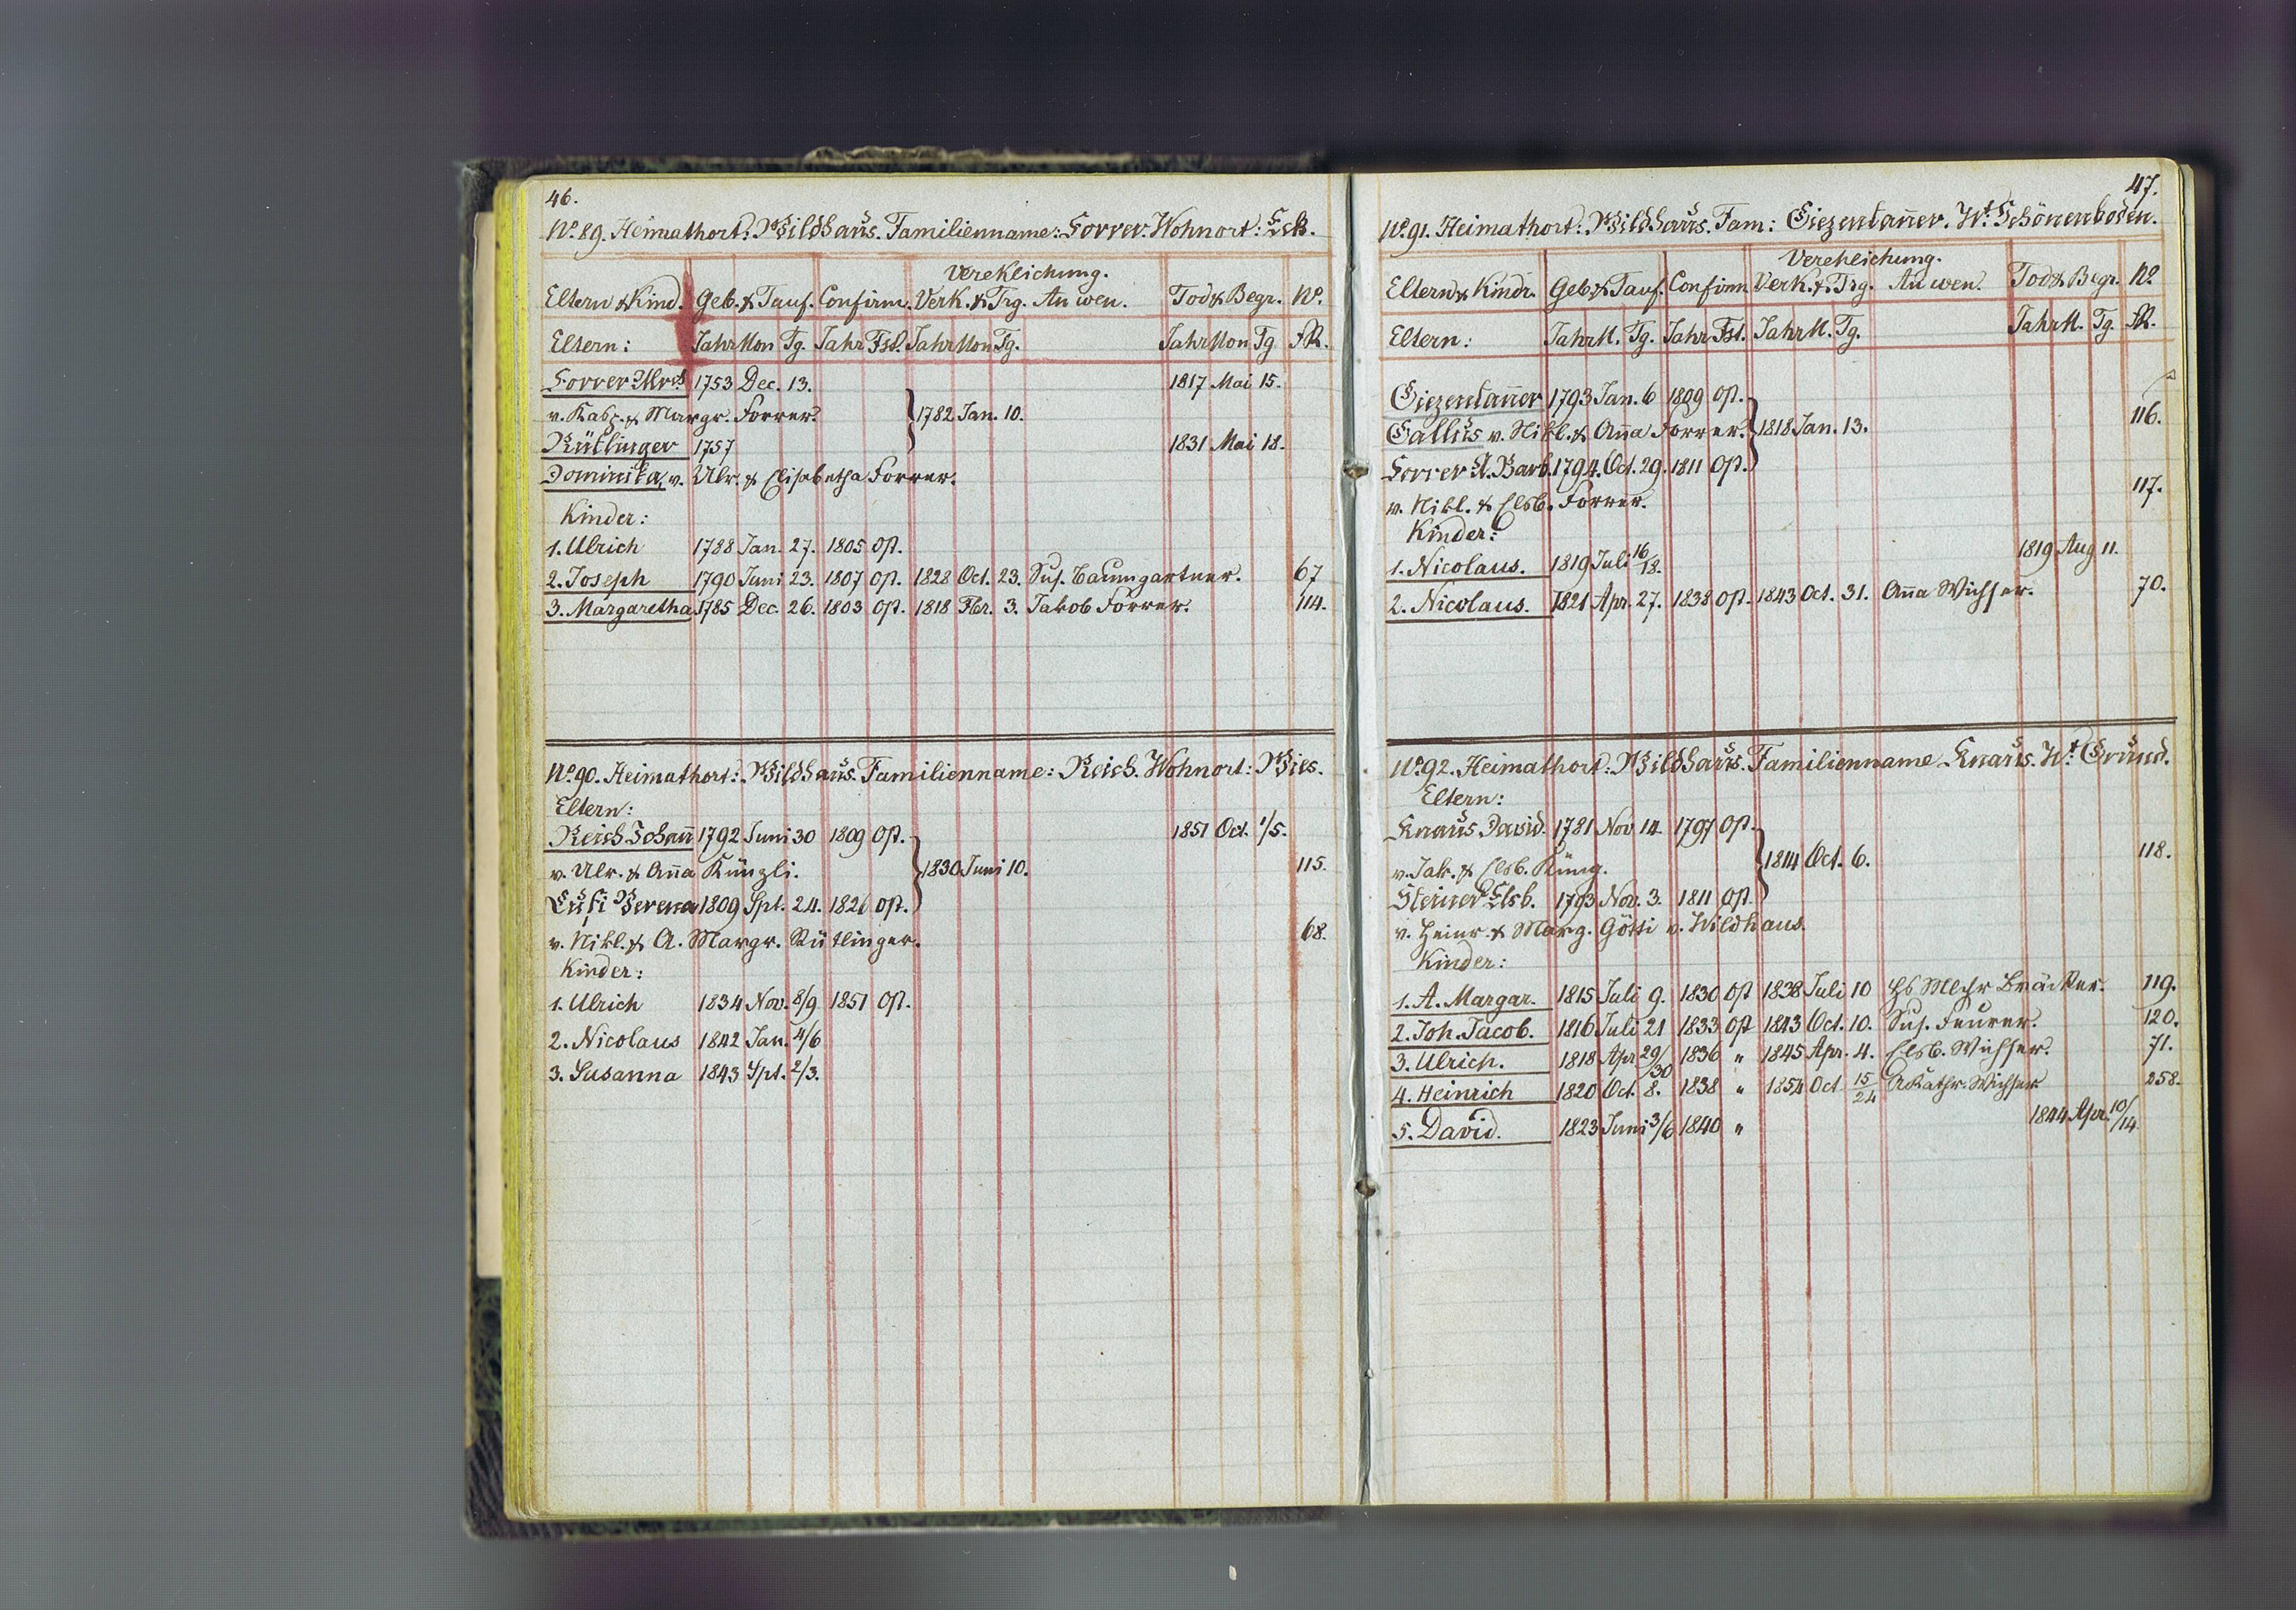 46.
No. 89. Heimathort: Wildhaus. Familienname: Forrer. Wohnort: Eck.
Verehlichung.
Eltern & Kind. Geb. & Tauf. Confirm. Verk. & Trg. An wen. Tod & Begr. No.
Eltern: Jahr Mon Tg. Jahr Fst. Jahr Mon Tg. Jahr Mon Tg
Forrer Ulrch 1753 Dec. 13. 1817 Mai 15.
v. & Margr. Forrer. 1782 Jan. 10.
Rütlinger 1757 1831 Mai 18.
Dominika, v. Ulr. & Elisabetha Forrer.
Kinder:
1. Ulrich 1788 Jan. 27. 1805 Ost.
2. Joseph 1790 Juni 23. 1807 Ost. 1828 Oct. 23. Sus. Baumgartner. 67
3. Margaretha 1785 Dec. 26. 1803 Ost. 1818 Fbr. 3. Jakob Forrer. 114.
No. 90. Heimathort: Wildhaus. Familienname: Reich. Wohnort: Wies.
Eltern:
Reich Johann 1792 Juni 30 1809 Ost. 1851 Oct. 1/5.
v. Ulr. & Anna Künzli. 1830 Juni 10. 115.
Lusi Verena 1809 Spt. 24. 1826 Ost.
v. Nikl. & A. Margr. Rütlinger. 68.
Kinder:
1. Ulrich 1834 Nov. 8/9 1851 Ost.
2. Nicolaus 1842 Jan. 4/6
3. Susanna 1843 Spt. 2/3.
47.
No. 91. Heimathort: Wildhaus. Fam: Giezentanner. Wt. Schönenboden.
Verehlichung.
Eltern & Kindr. Geb & Tauf. Confirm Verk. & Trg. An wen. Tod & Begr. No
Eltern: Jahr M. Tg. Jahr Fst. Jahr M. Tg. Jahr M. Tg.
Giezentanner 1793 Jan. 6 1809 Ost.
Gallus v. Nikl. & Anna Forrer. 1818 Jan. 13. 116.
Forrer A. Barb. 1794. Oct. 29. 1811 Ost.
v. Nikl. & Elsb. Forrer. 117.
Kinder:
1. Nicolaus. 1819 Juli 16/18. 1819 Aug 11.
2. Nicolaus. 1821 Apr. 27. 1838 Ost. 1843 Oct. 31. Anna Wichser. 70.
No. 92. Heimathort: Wildhaus. Familienname Knaus. Wt. Grund.
Eltern:
Knaus David. 1781 Nov 14. 1797 Ost.
v. Jak. & Elsb. Küng. 1814 Oct. 6. 118.
Steiner Elsb. 1793 Nov. 3. 1811 Ost.
v. Heinr. & Marg. Götti v. Wildhaus.
Kinder:
1. A. Margar. 1815 Juli 9. 1830 Ost 1838 Juli 10 Hs Mchr Bräcker. 119.
2. Joh. Jacob. 1816 Juli 21 1833 Ost 1843 Oct. 10. Sus. Feurer. 120.
3. Ulrich. 1818 Apr 29/30 1836 " 1845 Apr. 4. Elsb. Wichser. 71.
4. Heinrich 1820 Oct. 8. 1838 " 1854 Oct 15/24 A Kathr. Wichser 258.
5. David. 1823 Juni 3/6 1840 " 1844 Apr. 10/14